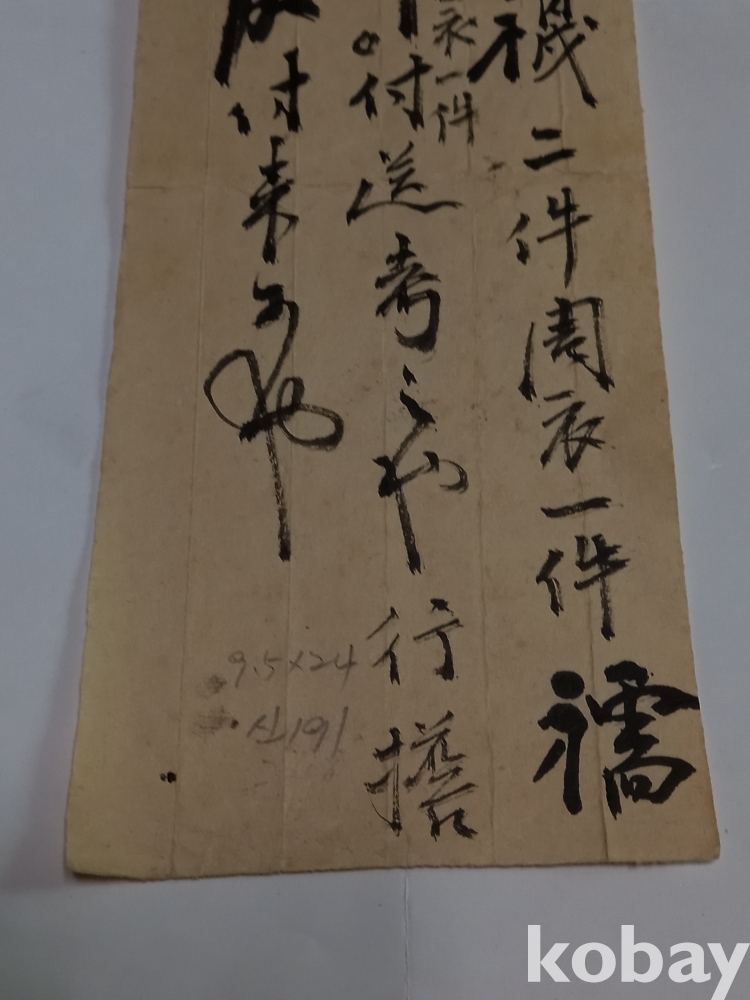 襪二件周衣一件襦
衣一件
付送考之也行搭
付来
9.5×24
시191
kobay